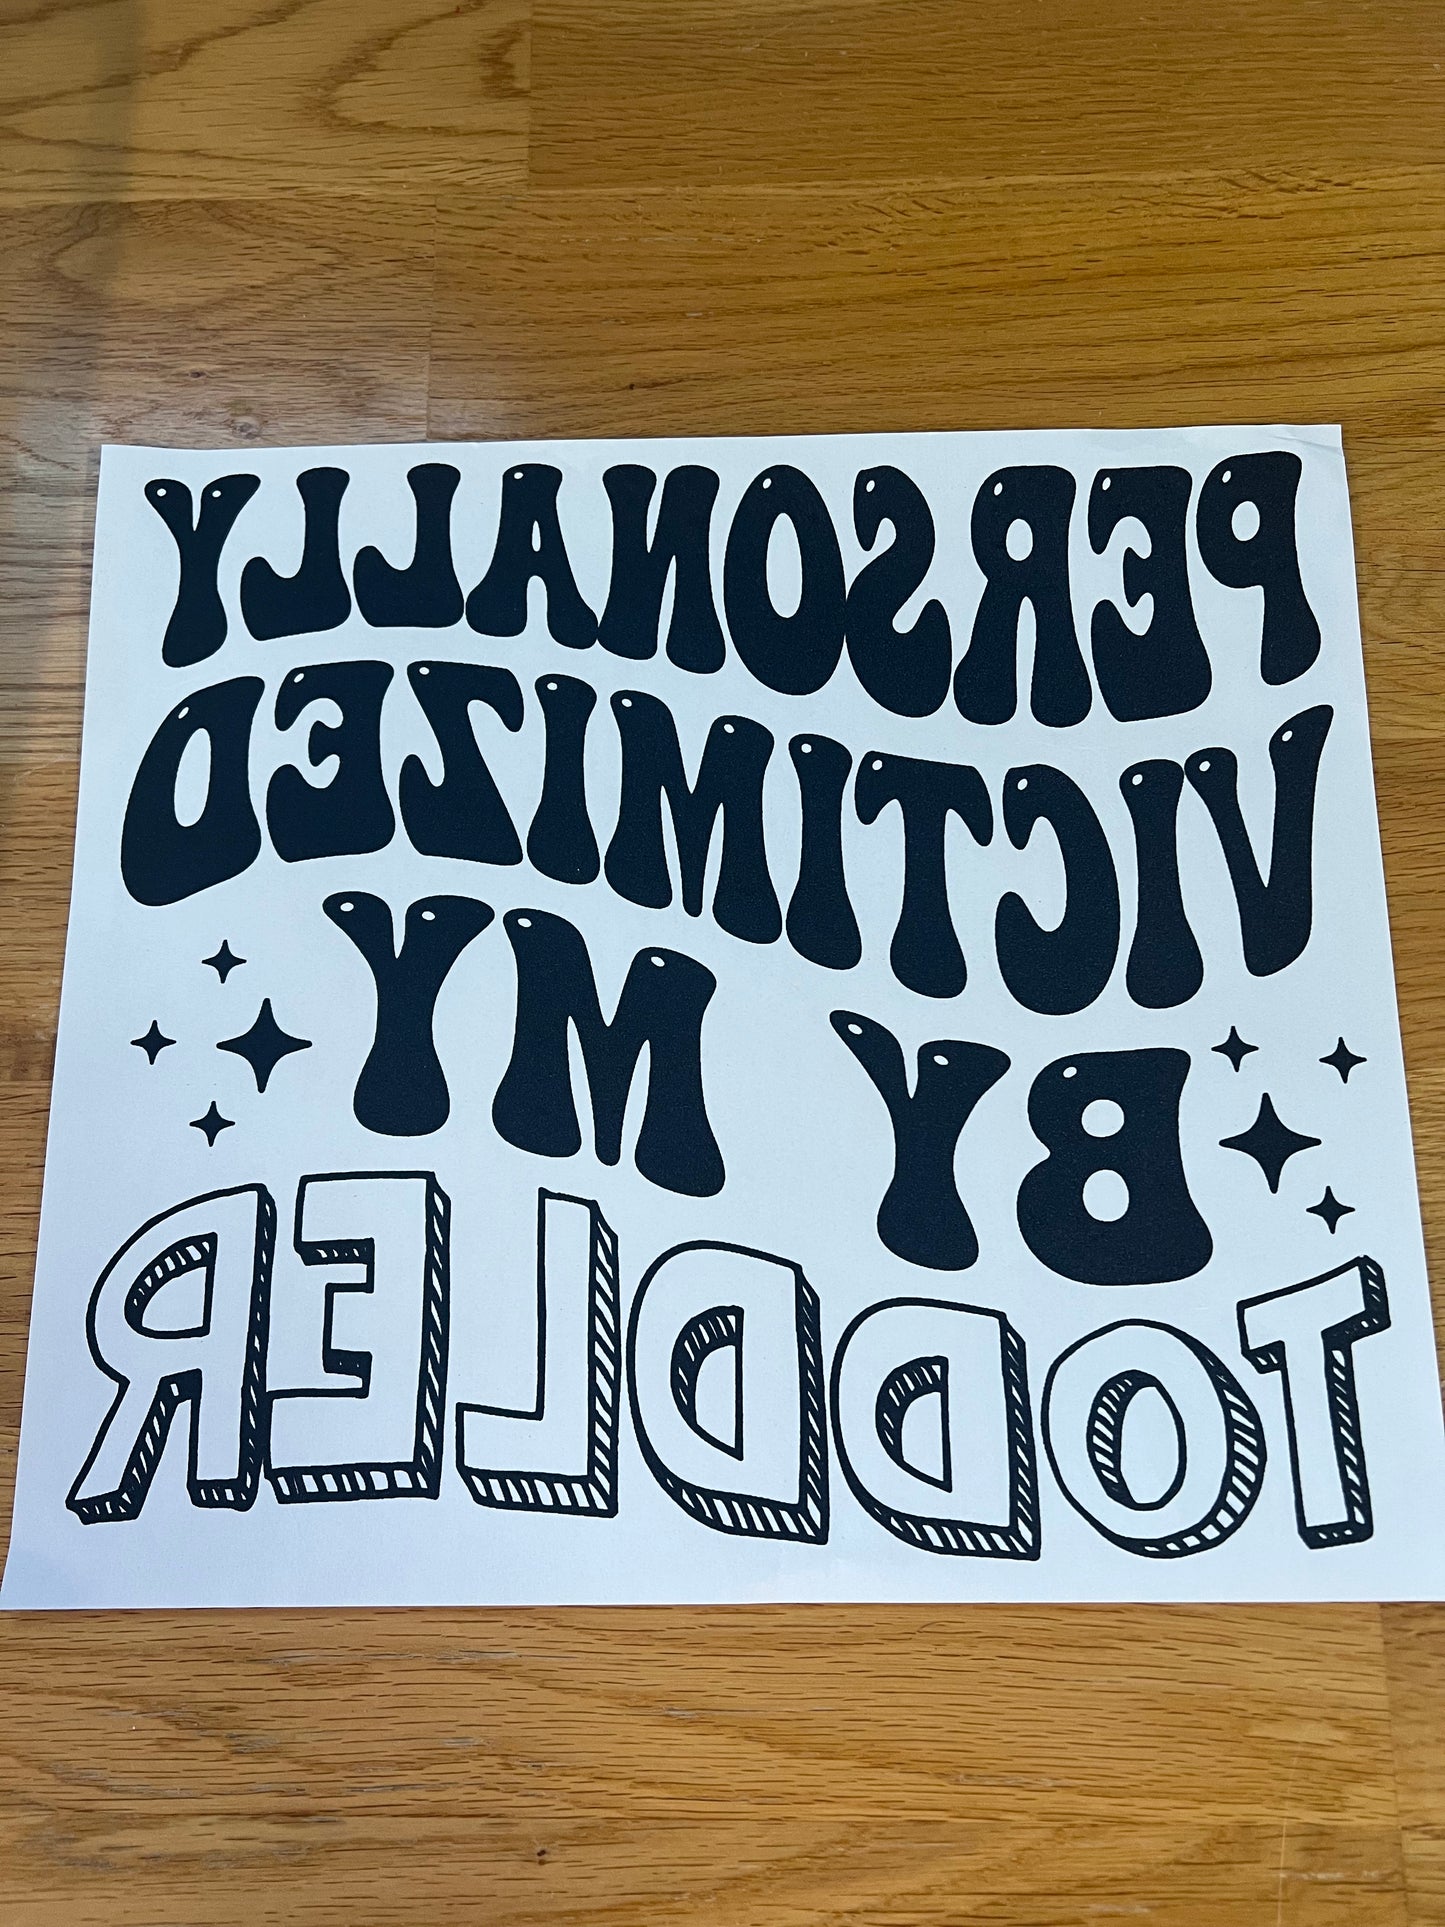 PERSONALLY
VICTIMIZED
BY MY
TODDLER